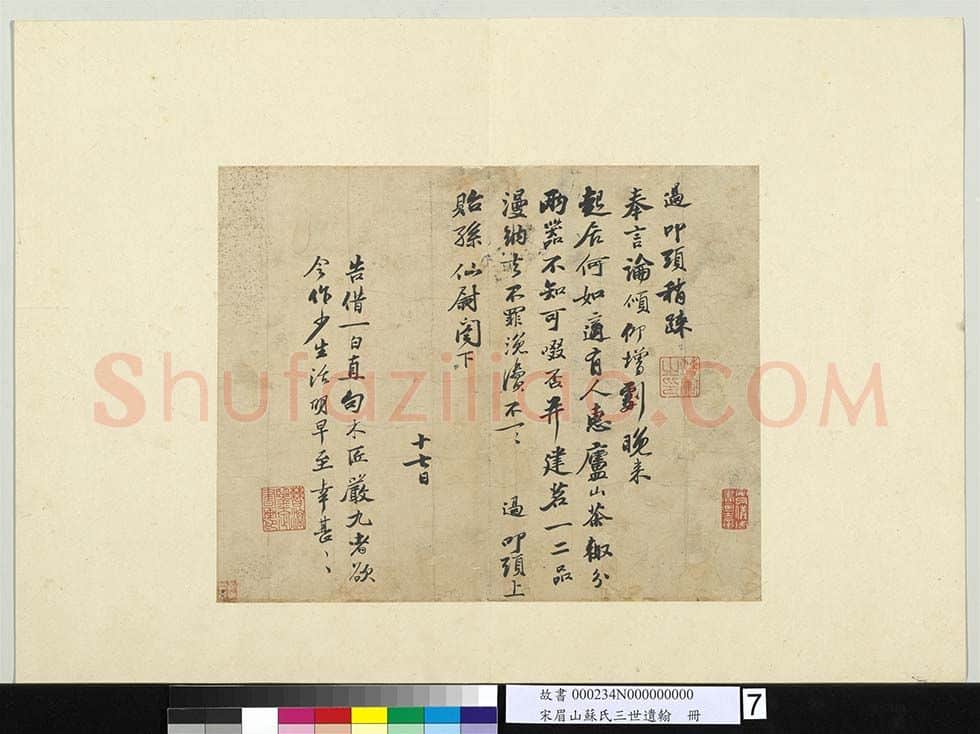 過叩頭稍疎
奉言論傾仰增劇晚来
起居何如適有人惠廬山茶輙分
兩器不知可啜否并建茗一二品
漫納上不罪浼瀆不一〻 過叩頭上
貽孫仙尉閤下
十七日
告借一白直勾木匠嚴九者欲
令作少生活明早至幸甚〻
Shufaziliao.COM
故書 000234N000000000
宋眉山蘇氏三世遺翰 冊
7